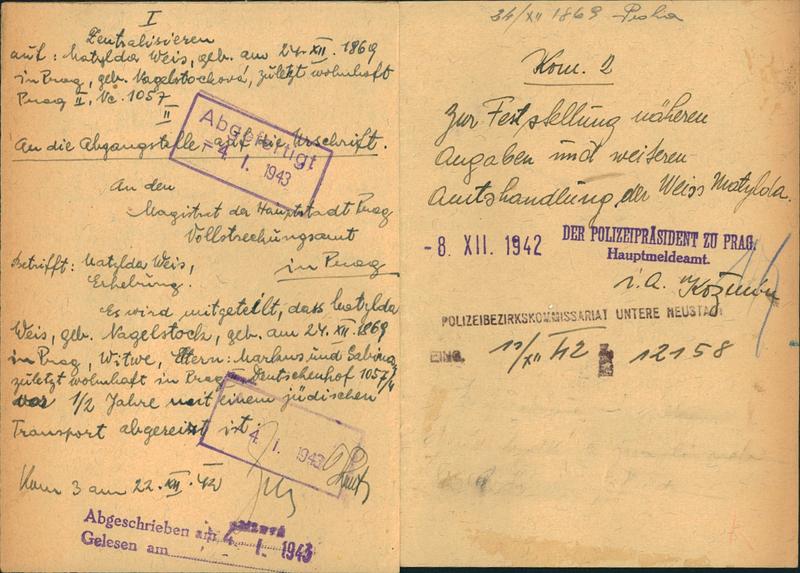 I
Zentralisieren
auf: Matylda Weis, geb. am 24. XII. 1869
in Prag, geb. Nagelstocková, zuletzt wohnhaft
Prag II, Nc. 1057
II
An die Abgangstelle auf die Urschrift.
Abgefertigt
- 4. I. 1943
An den
Magistrat der Hauptstadt Prag
Vollstreckungsamt
in Prag
Betrifft: Matylda Weis,
Erhebung.
Es wird mitgeteilt, dass Matylda
Weis, geb. Nagelstock, geb. am 24. XII. 1869
in Prag, Witwe, Eltern: Markus und Sabina
zuletzt wohnhaft in Prag Deutschenhof 1057/
vor 1/2 Jahre mit einem jüdischen
Transport abgereist ist.
4. I. 1943
Kom 3 am 22. XII. 42
Abgeschrieben am 4. I. 1943
Gelesen am
24/XII 1869 Praha
Kom. 2
Zur Feststellung näheren
Angaben und weiteren
Amtshandlung der Weiss Matylda.
- 8. XII. 1942
DER POLIZEIPRÄSIDENT ZU PRAG.
Hauptmeldeamt.
i. A.
POLIZEIBEZIRKSKOMMISSARIAT UNTERE NEUSTADT
EING. 11/XII 42 12158